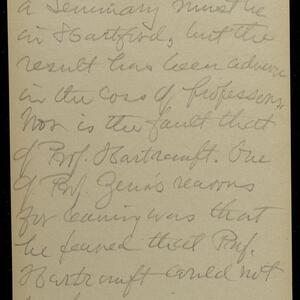 a Seminary must be
in Hartford, but the
result has been adverse
in the loss of Professors.
Nor is the fault that
of Prof. Hartranft. One
of Prof. Zenos's reasons
for leaving was that
he feared that Prof.
Hartranft could not